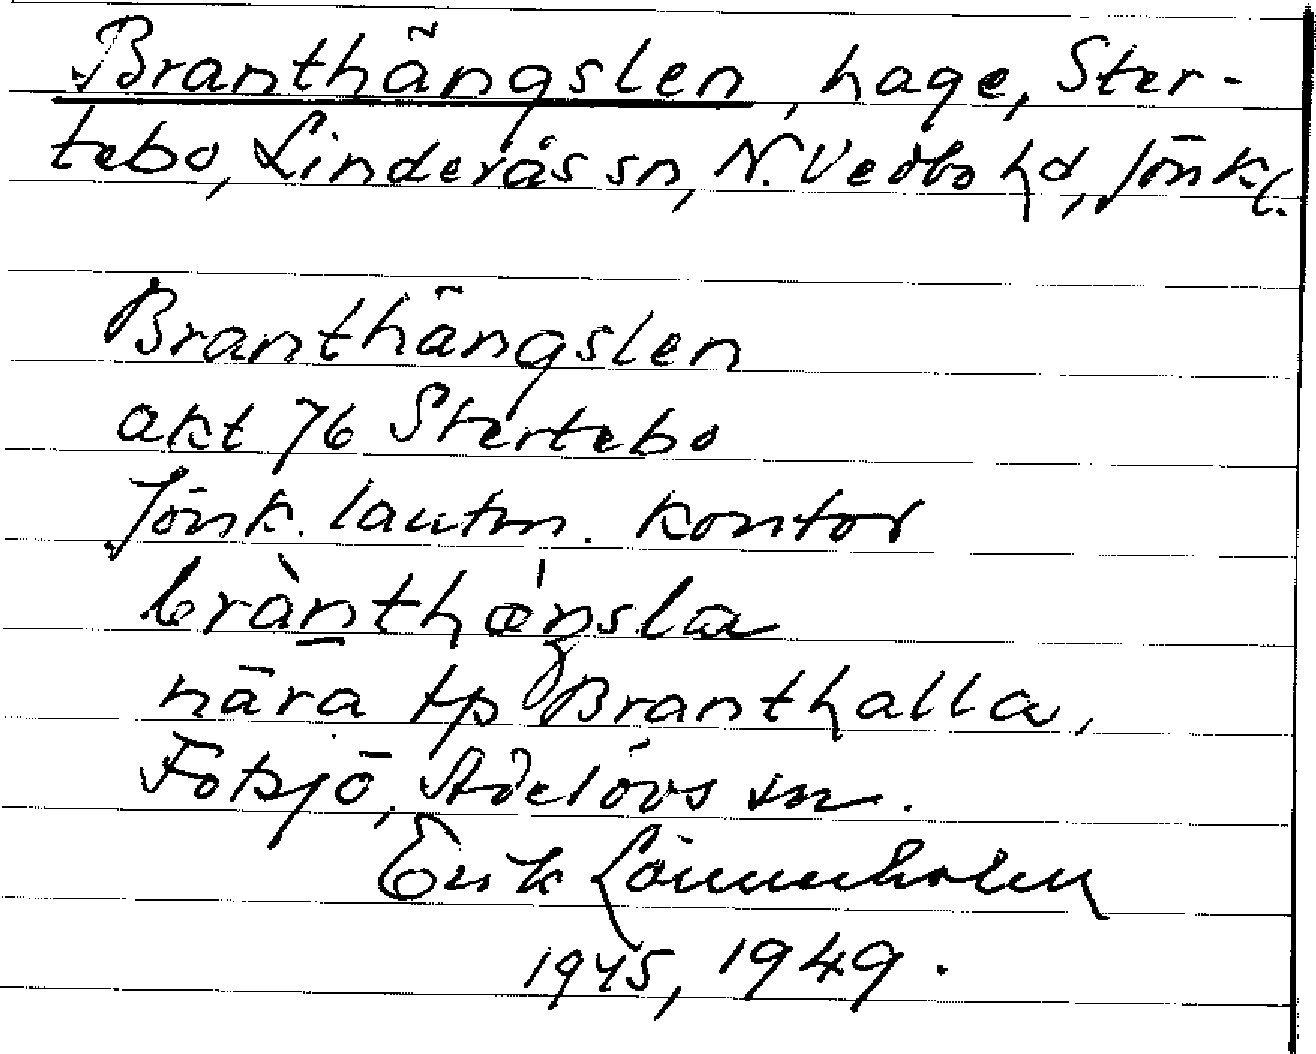 Branthängslen, hage, Ster-
tebo, Linderås sn, N. Vedbo hd, Jönk l.
Branthängslen
akt 76 Stertebo
Jönk. lantm. kontor
brànthæ̀ŋsla
nära tp Branthalla,
Adelövs sn.
Erik Lönnerholm
1945, 1949.